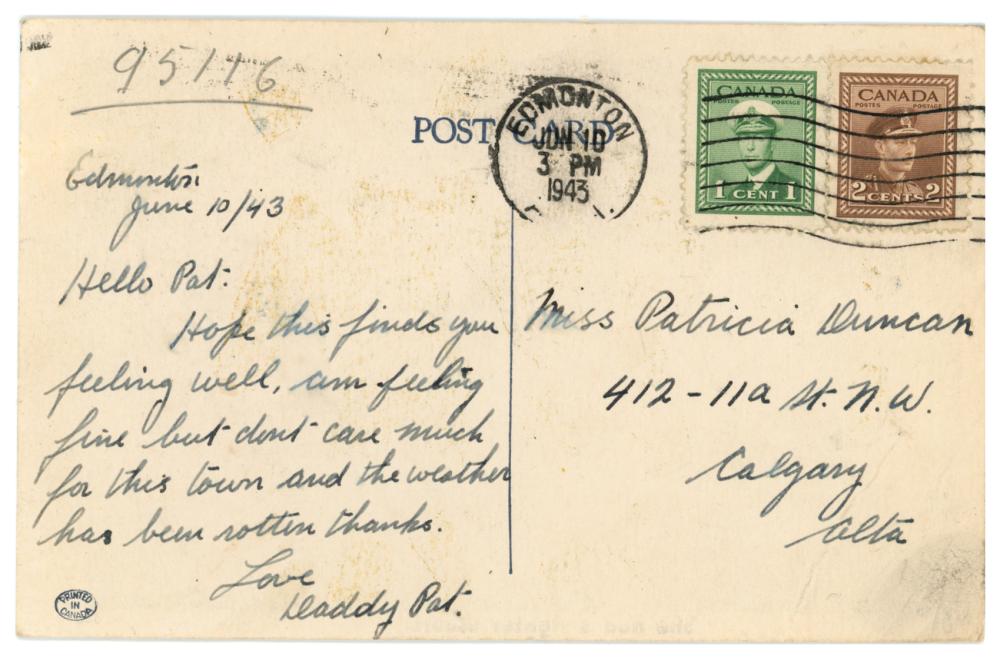 95116
POST CARD
EDMONTON
JUN 10
3 PM
1943
CANADA
POSTES POSTAGE
1 CENT 1
CANADA
POSTES POSTAGE
2 CENTS 2
Edmonton
June 10/43
Hello Pat:
Hope this finds you
feeling well, am feeling
fine but dont care much
for this town and the weather
has been rotten thanks.
Love
Daddy Pat.
Miss Patricia Duncan
412-11a St. N.W.
Calgary
Alta
PRINTED
IN
CANADA